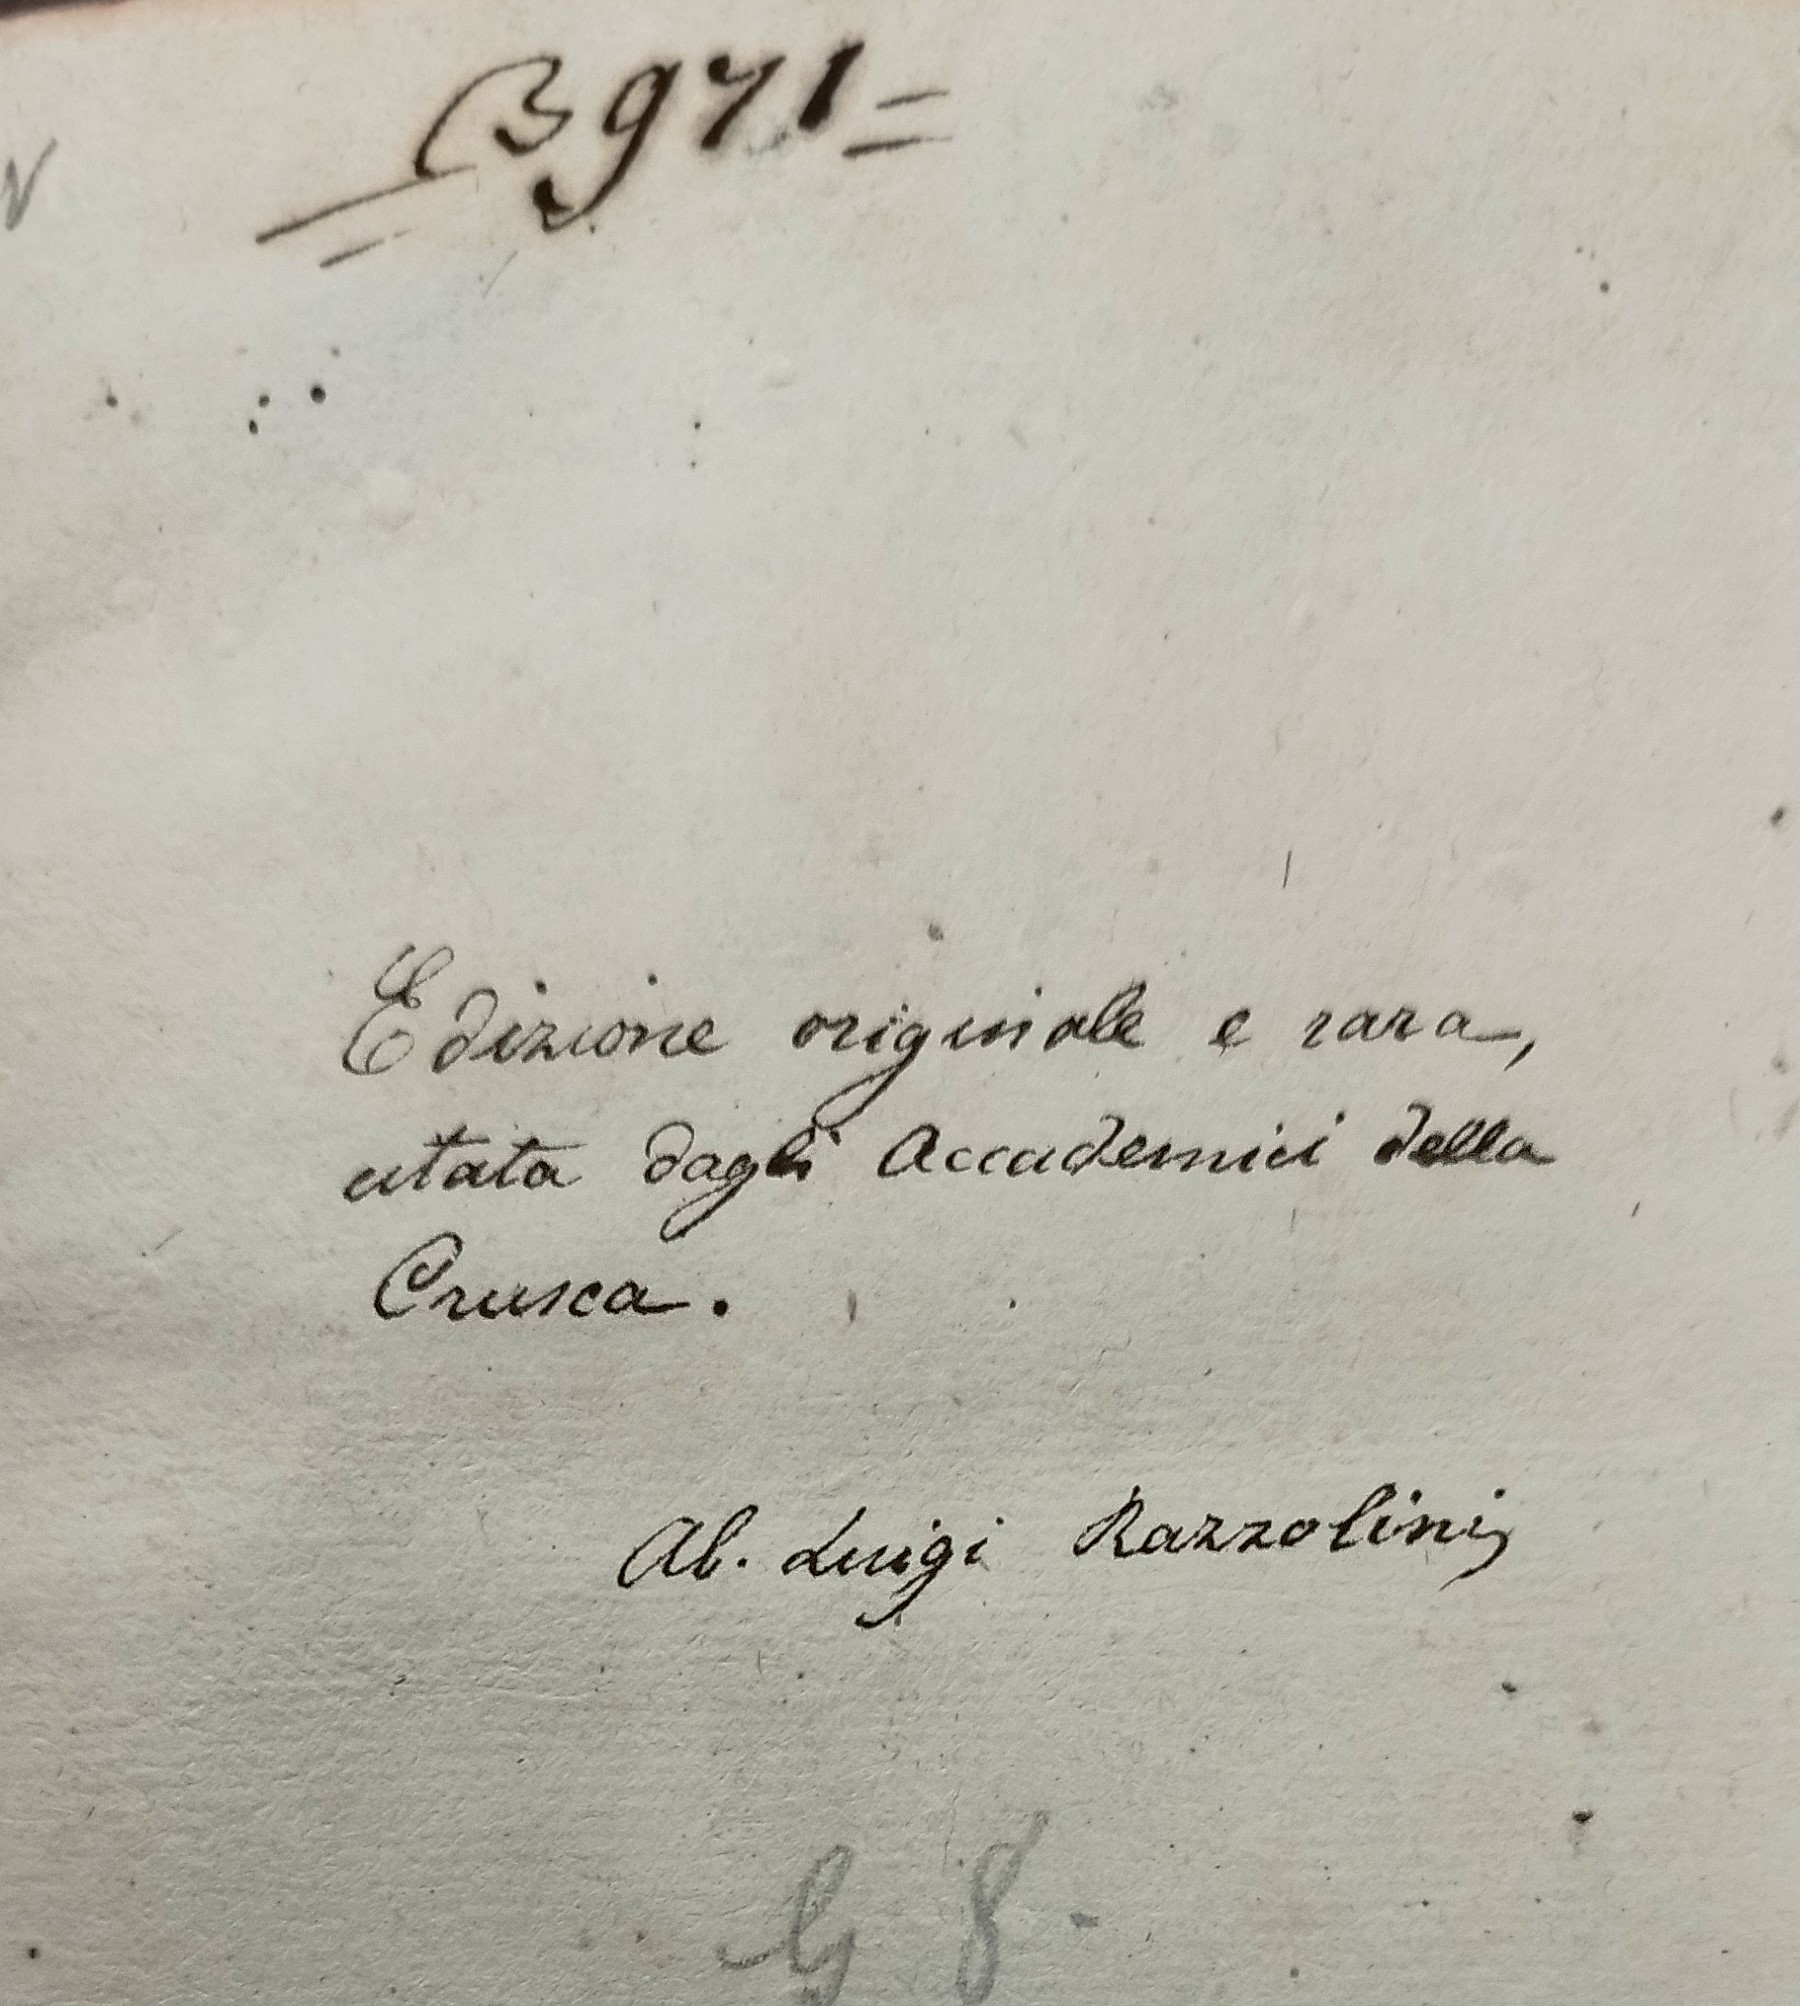 B971=
Edizione originale e rara,
citata dagli Accademici della
Crusca.
Ab. Luigi Razzolini